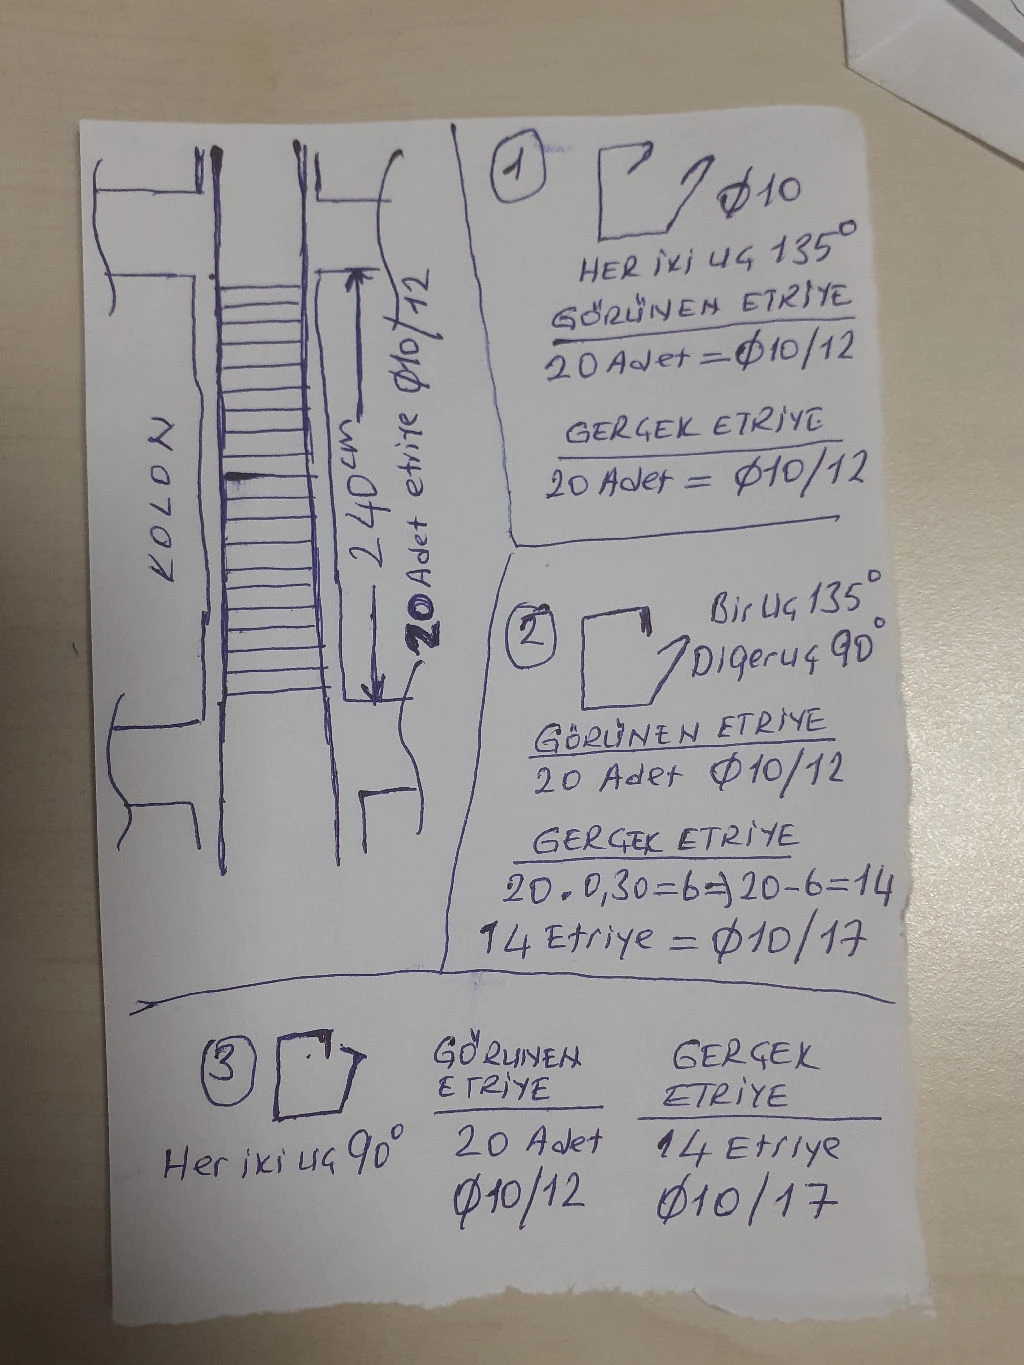 KOLON
240cm
20 Adet etriye Ø10/12
1
Ø10
HER iKi UÇ 135°
GÖRÜNEN ETRİYE
20 Adet = Ø10/12
GERÇEK ETRİYE
20 Adet = Ø10/12
2
Bir Uç 135°
Diğer uç 90°
GÖRÜNEN ETRİYE
20 Adet Ø10/12
GERÇEK ETRİYE
20.0,30=6⇒20-6=14
14 Etriye = Ø10/17
3
Her iki uç 90°
GÖRÜNEN
ETRİYE
20 Adet
Ø10/12
GERÇEK
ETRİYE
14 Etriye
Ø10/17